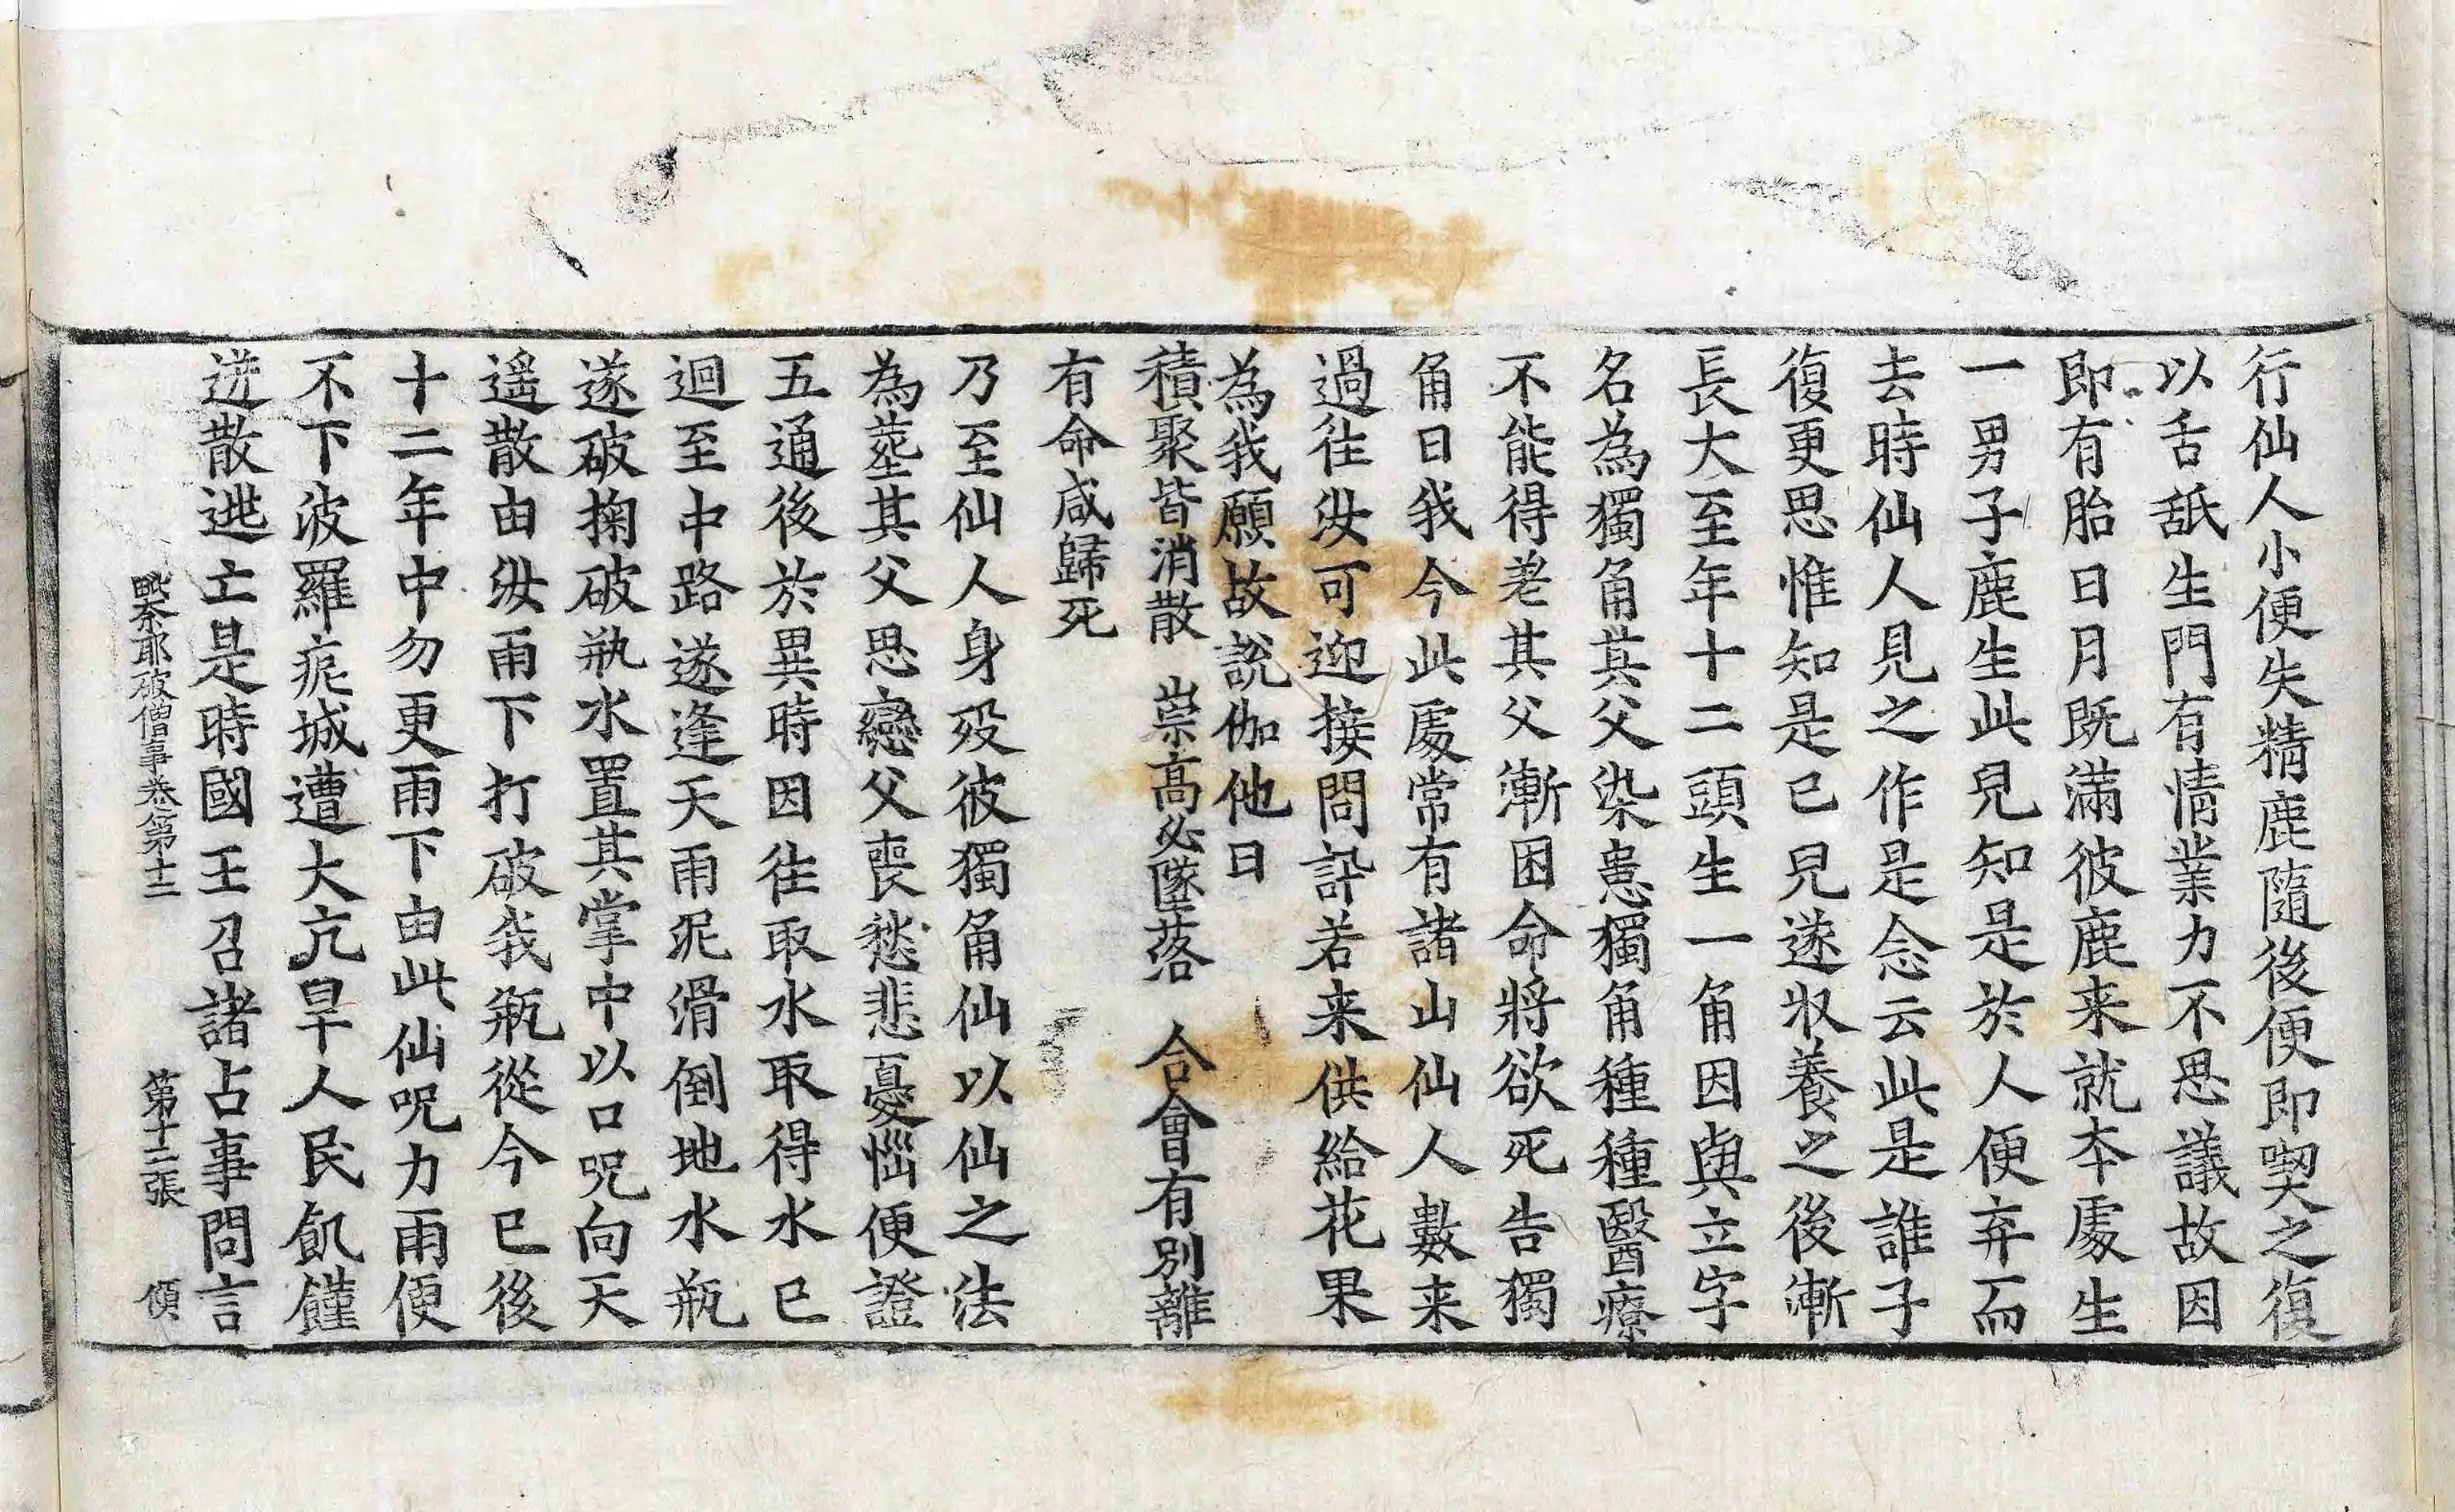 行仙人小便失精鹿隨後便即喫之復
以舌舐生門有情業力不思議故因
即有胎日月既滿彼鹿来就本處生
一男子鹿生此兒知是於人便弃而
去時仙人見之作是念云此是誰子
復更思惟知是已兒遂收養之後漸
長大至年十二頭生一角因與立字
名為獨角其父染患獨角種種醫療
不能得差其父漸困命將欲死告獨
角曰我今此處常有諸山仙人數来
過往汝可迎接問訊若来供給花果
為我願故說伽他曰
積聚皆消散 崇高必墜落 合會有別離
有命咸歸死
乃至仙人身歿彼獨角仙以仙之法
為塟其父思戀父喪愁悲憂惱便證
五通後於異時因往取水取得水已
迴至中路遂逢天雨泥滑倒地水瓶
遂破掬破瓶水置其掌中以口呪向天
遥散由汝雨下打破我瓶從今已後
十二年中勿更雨下由此仙呪力雨便
不下波羅痆城遭大亢旱人民飢饉
迸散逃亡是時國王召諸占事問言
毗奈耶破僧事卷第十二 第十二張 傾